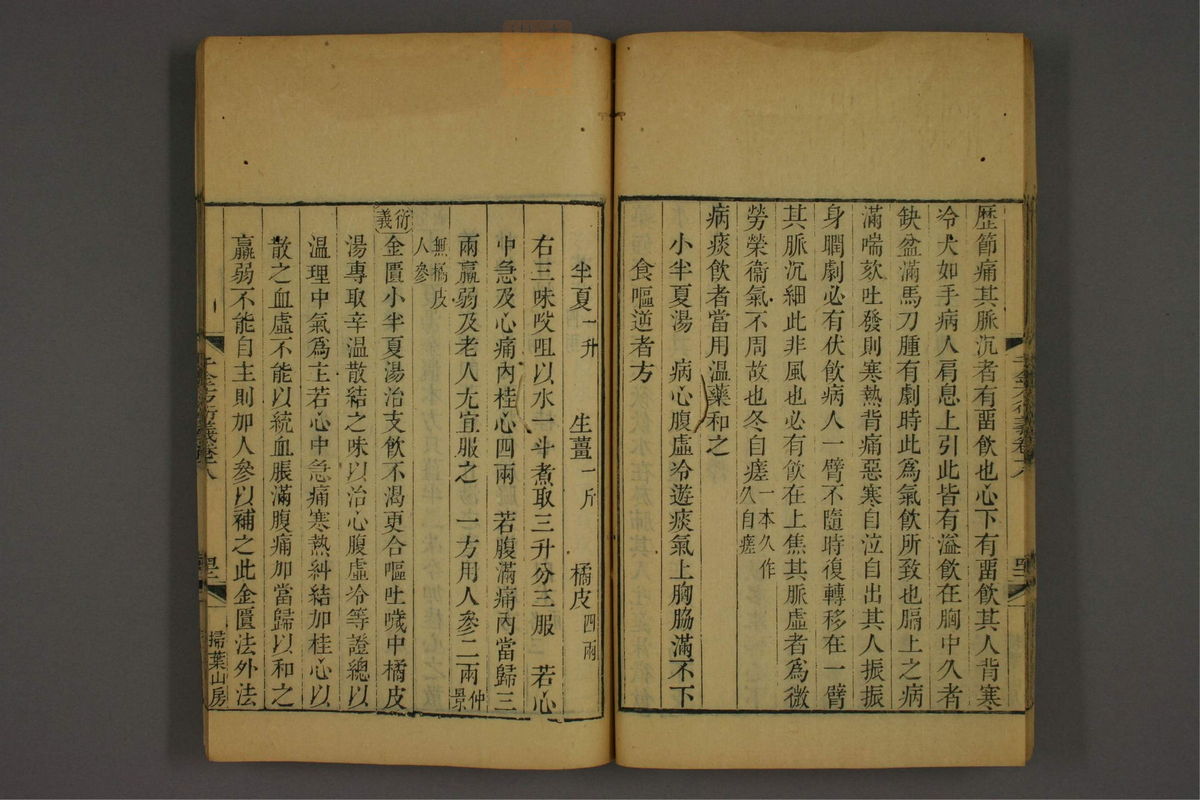 歴節痛其脉沉者有畱飲也心下有畱飲其人背寒
冷大如手病人肩息上引此皆有溢飲在胸中久者
缺盆滿馬刀腫有劇時此爲氣飲所致也膈上之病
滿喘欬吐發則寒熱背痛惡寒自泣自出其人振振
身瞤劇必有伏飲病人一臂不隨時復轉移在一臂
其脉沉細此非風也必有飲在上焦其脉虛者爲微
勞榮衞氣不周故也冬自瘥一本久作久自瘥
病痰飲者當用溫藥和之
小半夏湯　病心腹虛冷遊痰氣上胸脇滿不下
食嘔逆者方
半夏一升　生薑一斤　橘皮四兩
右三味㕮咀以水一斗煮取三升分三服　若心
中急及心痛內桂心四兩　若腹滿痛內當歸三
兩羸弱及老人尤宜服之　一方用人參二兩仲景
無橘皮人參
衍義 金匱小半夏湯治支飲不渴更合嘔吐噦中橘皮
湯專取辛溫散結之味以治心腹虛冷等證總以
溫理中氣爲主若心中急痛寒熱糾結加桂心以
散之血虛不能以統血脹滿腹痛加當歸以和之
羸弱不能自主則加人參以補之此金匱法外法
千金方衍義卷十八
掃葉山房